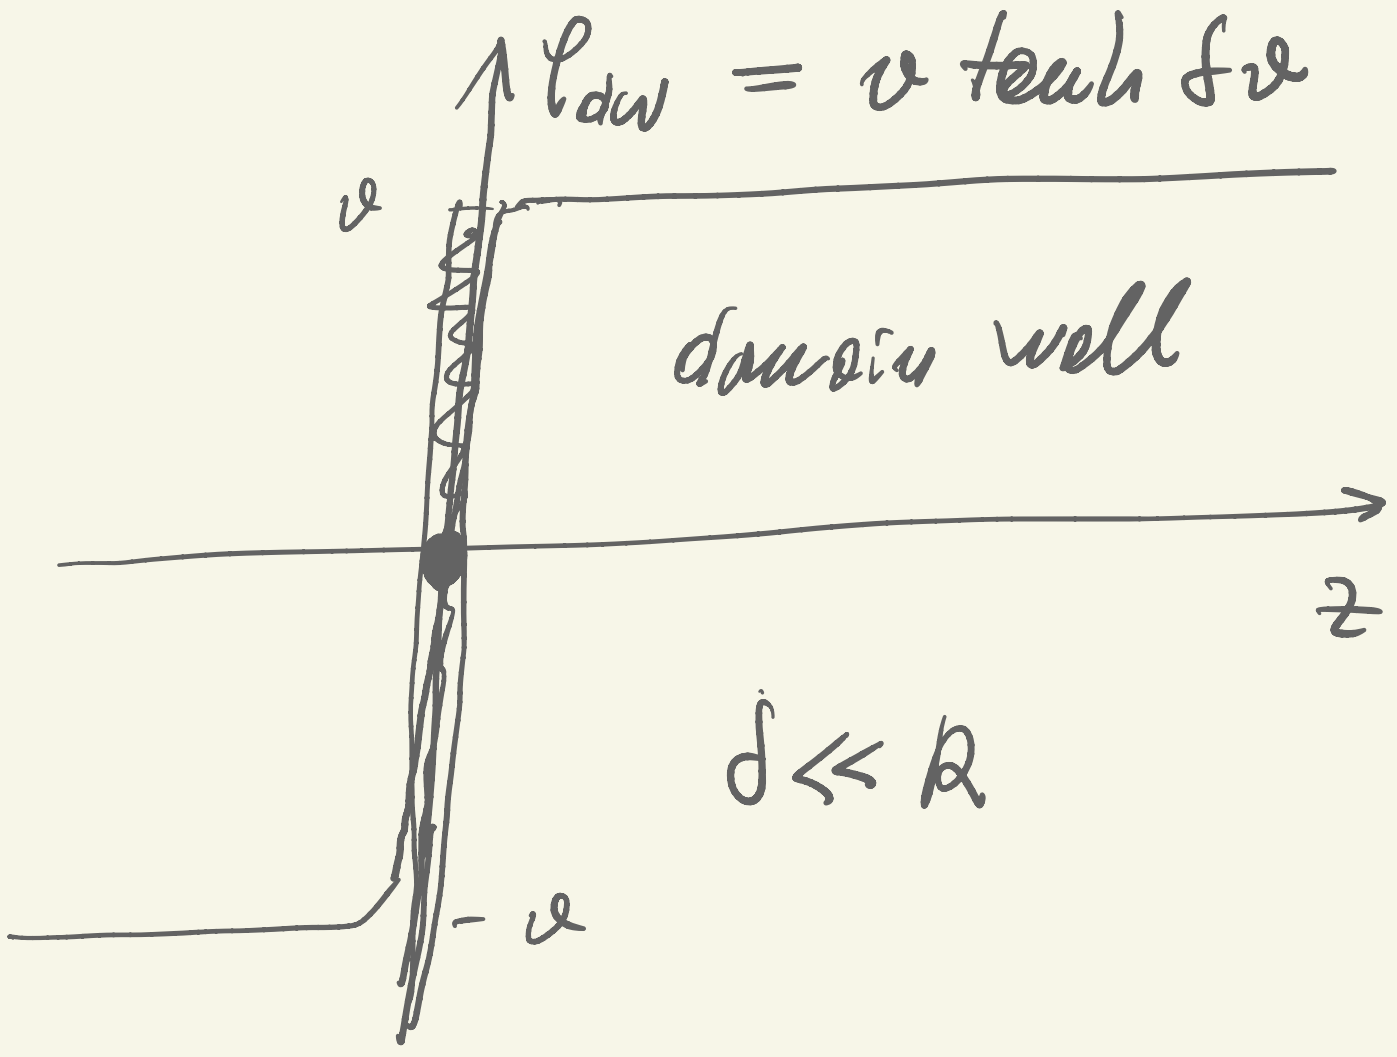 φ_dw = v tanh δv
v
domain wall
z
δ << R
- v